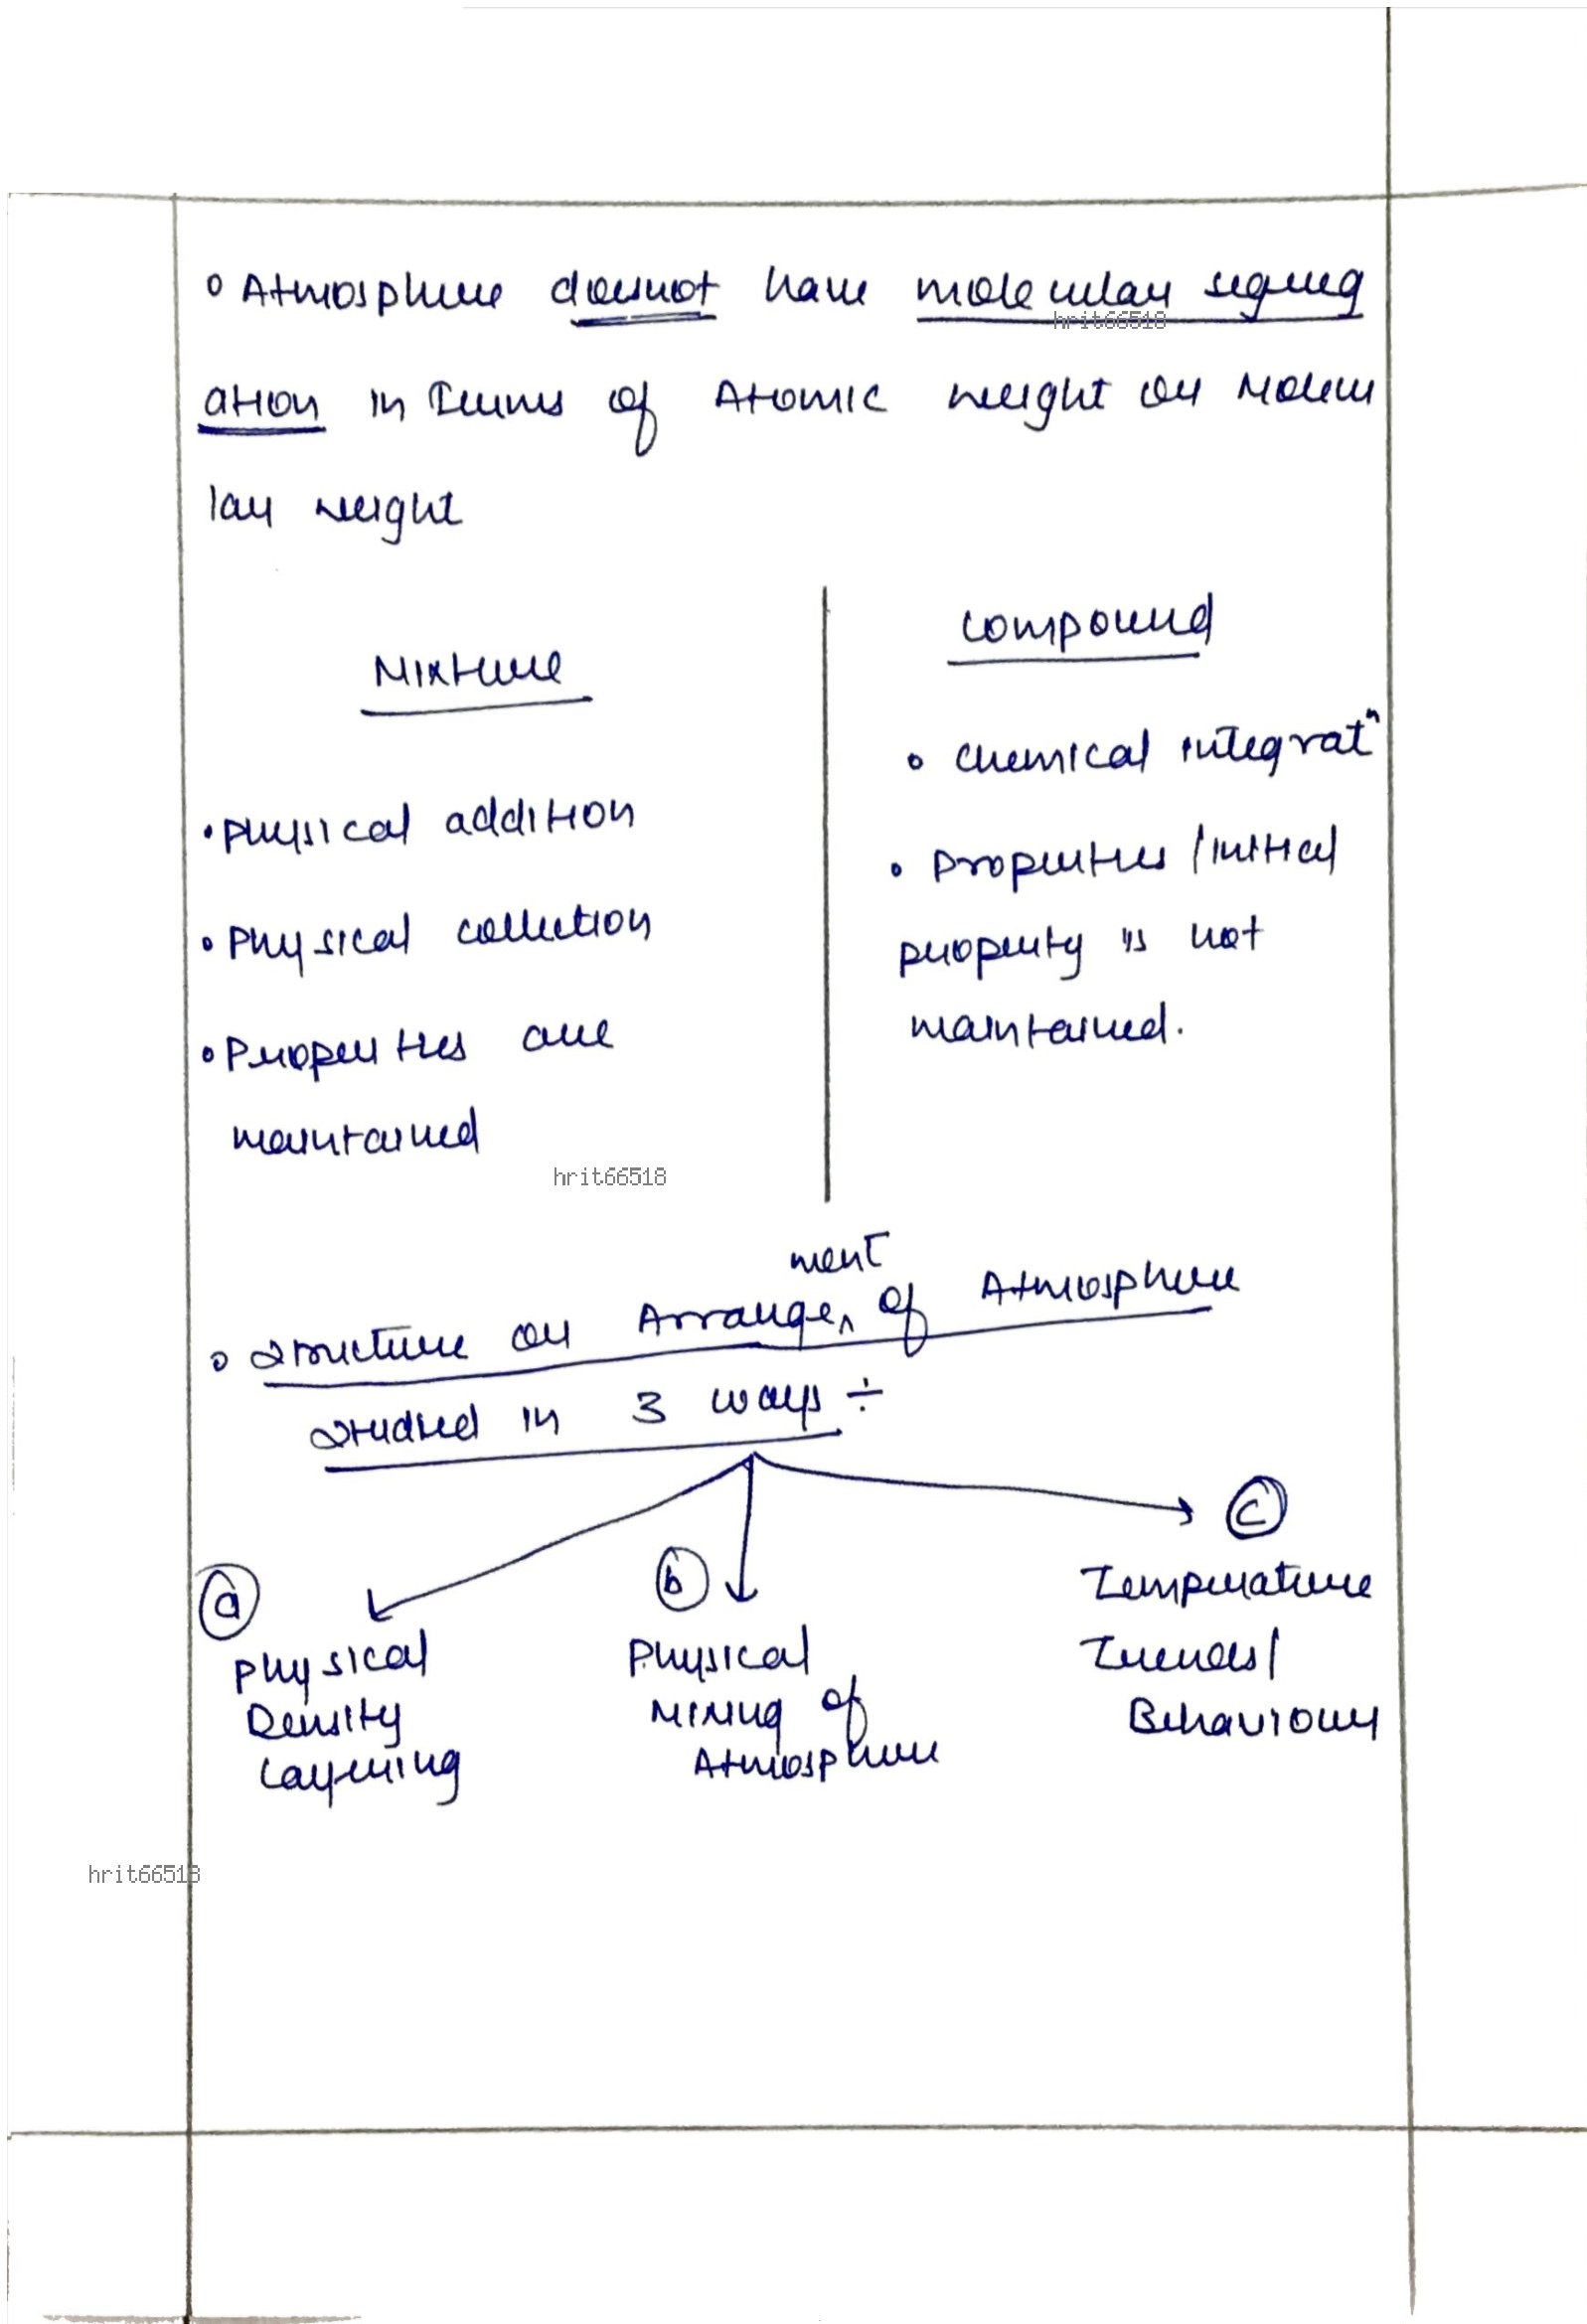 ° Atmosphere doesnot have molecular segreg
ation in Terms of Atomic weight or Molecu
lar weight
hrit66518
Mixture
• Physical addition
• Physical collection
• Properties are
maintained
Compound
• Chemical integratⁿ
• Properties / initial
property is not
maintained.
hrit66518
° Structure or Arrangement of Atmosphere
studied in 3 ways ÷
a
Physical
Density
Layering
b
Physical
Mixing of
Atmosphere
c
Temperature
Trends/
Behaviour
hrit66518